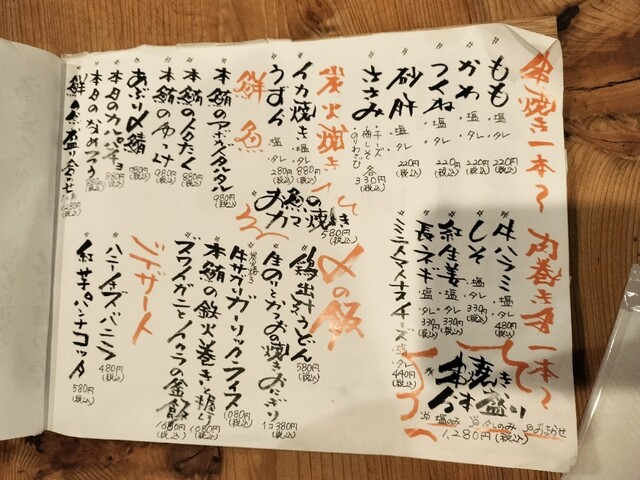 串焼き一本〜
もも ・塩 ・タレ 220円(税込)
かわ ・塩 ・タレ 220円(税込)
つくね ・塩 ・タレ 220円(税込)
砂肝 220円(税込)
ささみ ・チーズ ・梅しそ ・のりわさび 各330円(税込)
炭火焼き
イカ焼き 880円(税込)
うずら ・塩 ・タレ 280円(税込)
お魚のカマ焼き 580円(税込)
鮮魚
本鮪のマグロタルタル 980円(税込)
本鮪のユッケ 980円(税込)
あぶり〆鯖 780円(税込)
本日のカルパッチョ 880円(税込)
本日のなめろう
鮮魚盛り合せ
肉巻き串一本〜
牛ハラミ ・塩 ・タレ 480円(税込)
しそ ・塩 ・タレ 330円(税込)
紅生姜 ・塩 ・タレ 330円(税込)
長ネギ ・塩 ・タレ 330円(税込)
ミニトマトチーズ ・塩 ・タレ 440円(税込)
串焼き5本盛り
塩のみ タレのみ おまかせ
1,280円(税込)
〆の飯
鶏出汁うどん 580円(税込)
生のりとかつおの焼きおにぎり 1コ380円(税込)
牛サガリガーリックライス
本鮪の鉄火巻き 1080円(税込)
ズワイガニとイクラの釜飯 1680円(税込)
デザート
ハニーチーズバニラ 480円(税込)
紅芋パンナコッタ 580円(税込)